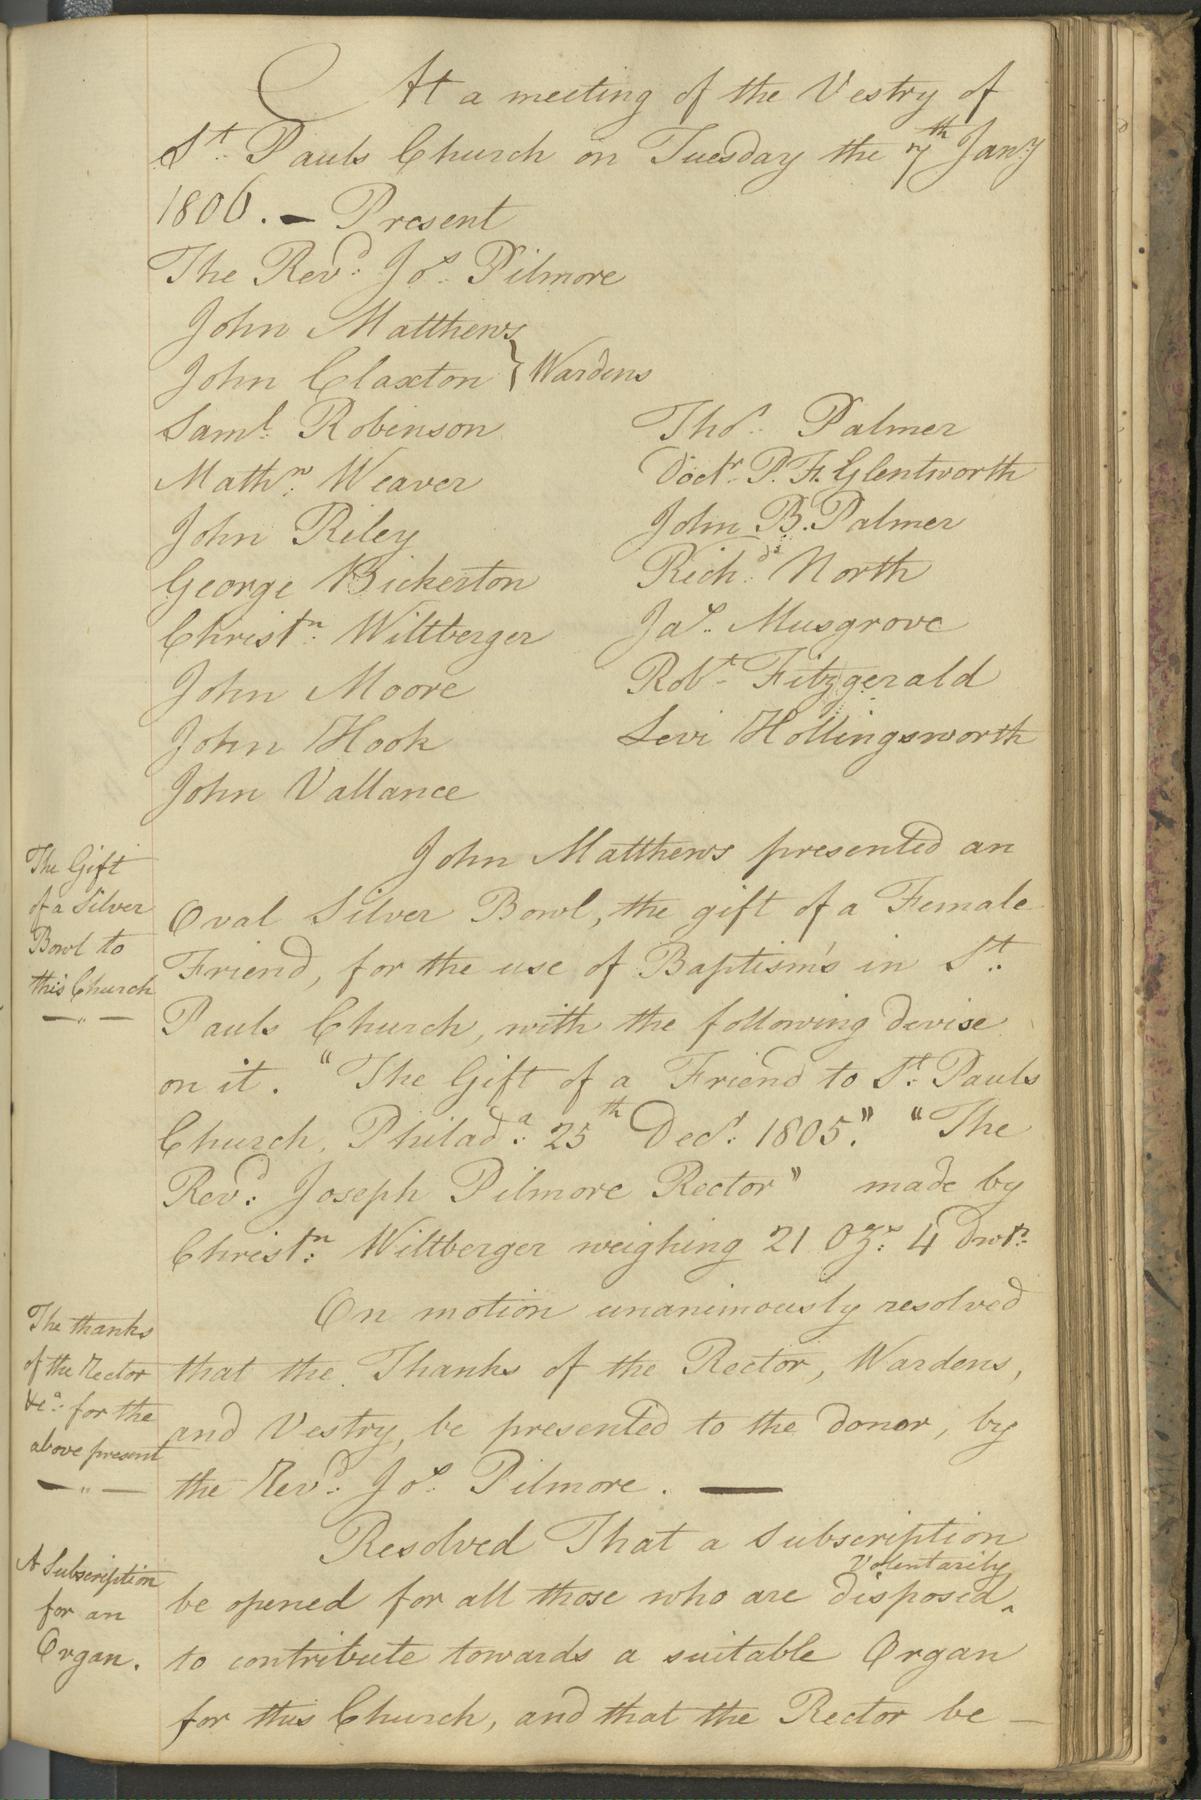 At a meeting of the Vestry of
St. Pauls Church on Tuesday the 7th Jany
1806. — Present
The Revd. Jos. Pilmore
John Matthews
John Claxton } Wardens
Saml. Robinson
Mathw. Weaver
John Riley
George Bickerton
Christn. Wiltberger
John Moore
John Hook
John Vallance
Thos. Palmer
Doctr. P. F. Glentworth
John B. Palmer
Richd. North
Jas. Musgrove
Robt. Fitzgerald
Levi Hollingsworth
The Gift
of a Silver
Bowl to
this Church
John Matthews presented an
Oval Silver Bowl, the gift of a Female
Friend, for the use of Baptism's in St.
Pauls Church, with the following devise
on it. "The Gift of a Friend to St. Pauls
Church, Philada. 25th Decr. 1805." "The
Revd. Joseph Pilmore Rector" made by
Christn. Wiltberger weighing 21 Ozs. 4 Dwts.
The thanks
of the Rector
&ca. for the
above present
On motion unanimously resolved
that the Thanks of the Rector, Wardens,
and Vestry, be presented to the donor, by
the Revd. Jos. Pilmore. —
A Subscription
for an
Organ.
Resolved That a Subscription
Volentarily
be opened for all those who are disposed ‸
to contribute towards a suitable Organ
for this Church, and that the Rector be —